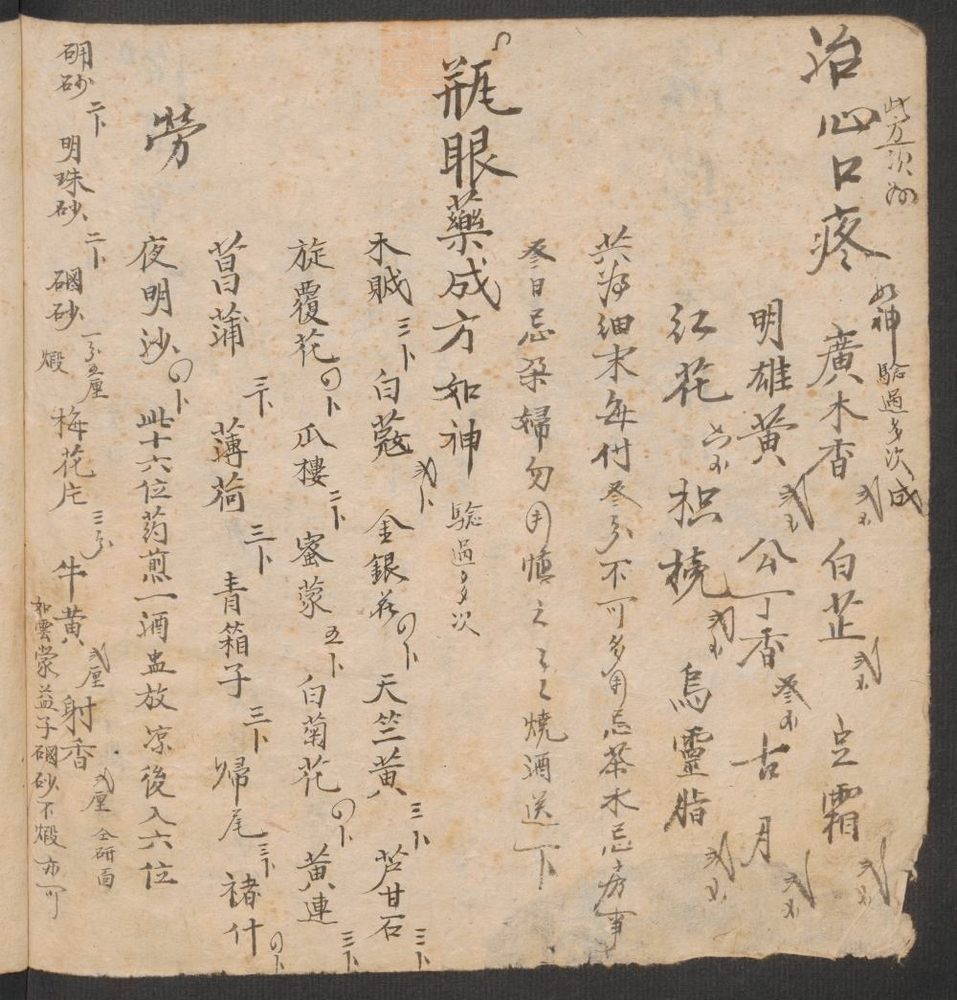 治心口疼
此方次
如神 驗過多次成
廣木香 白芷 豆霜
明雄黃 公丁香 古月
紅花 枳 烏靈脂
共為細末每付叁分不可多用忌茶水忌房事
叁日忌 婦勿用慎之之之燒酒送下
瓶眼藥成方如神 驗過多次
木賊三卜 白蔻 金銀花 天竺黃三卜 芦甘石三卜
旋覆花 瓜樓二卜 蜜蒙五卜 白菊花 黃連三卜
菖蒲三卜 薄荷三卜 青箱子三卜 歸尾三卜 褚什
勞
夜明沙 此十六位药煎一酒盅放凉後入六位
硼砂二卜 明珠砂二卜 硇砂一分五厘 煅 梅花片三分 牛黃弍厘 射香弍厘 仝研面
如雲蒙益子硇砂不煅亦可